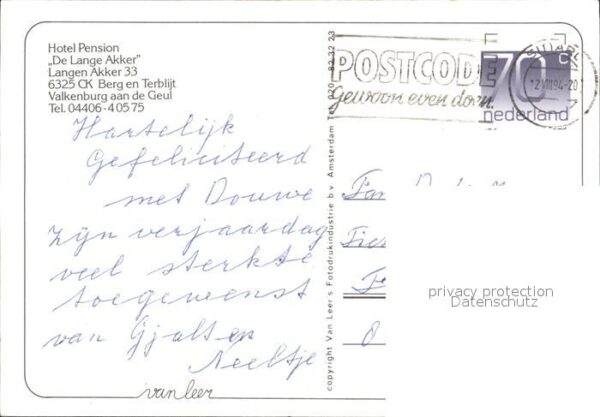 Hotel Pension
„De Lange Akker”
Langen Akker 33
6325 CK Berg en Terblijt
Valkenburg aan de Geul
Tel. 04406-40575
Hartelijk
Gefeliciteerd
met Douwe
zijn verjaardag
veel sterkte
toegewenst
van Gjalt en
Neeltje
van leer
copyright Van Leer's Fotodrukindustrie b.v. Amsterdam Tel. 020 - 82 32 23
POSTCODE
Gewoon even doen.
70 c
nederland
SITTARD
12.VIII.94-20
Fam
privacy protection
Datenschutz